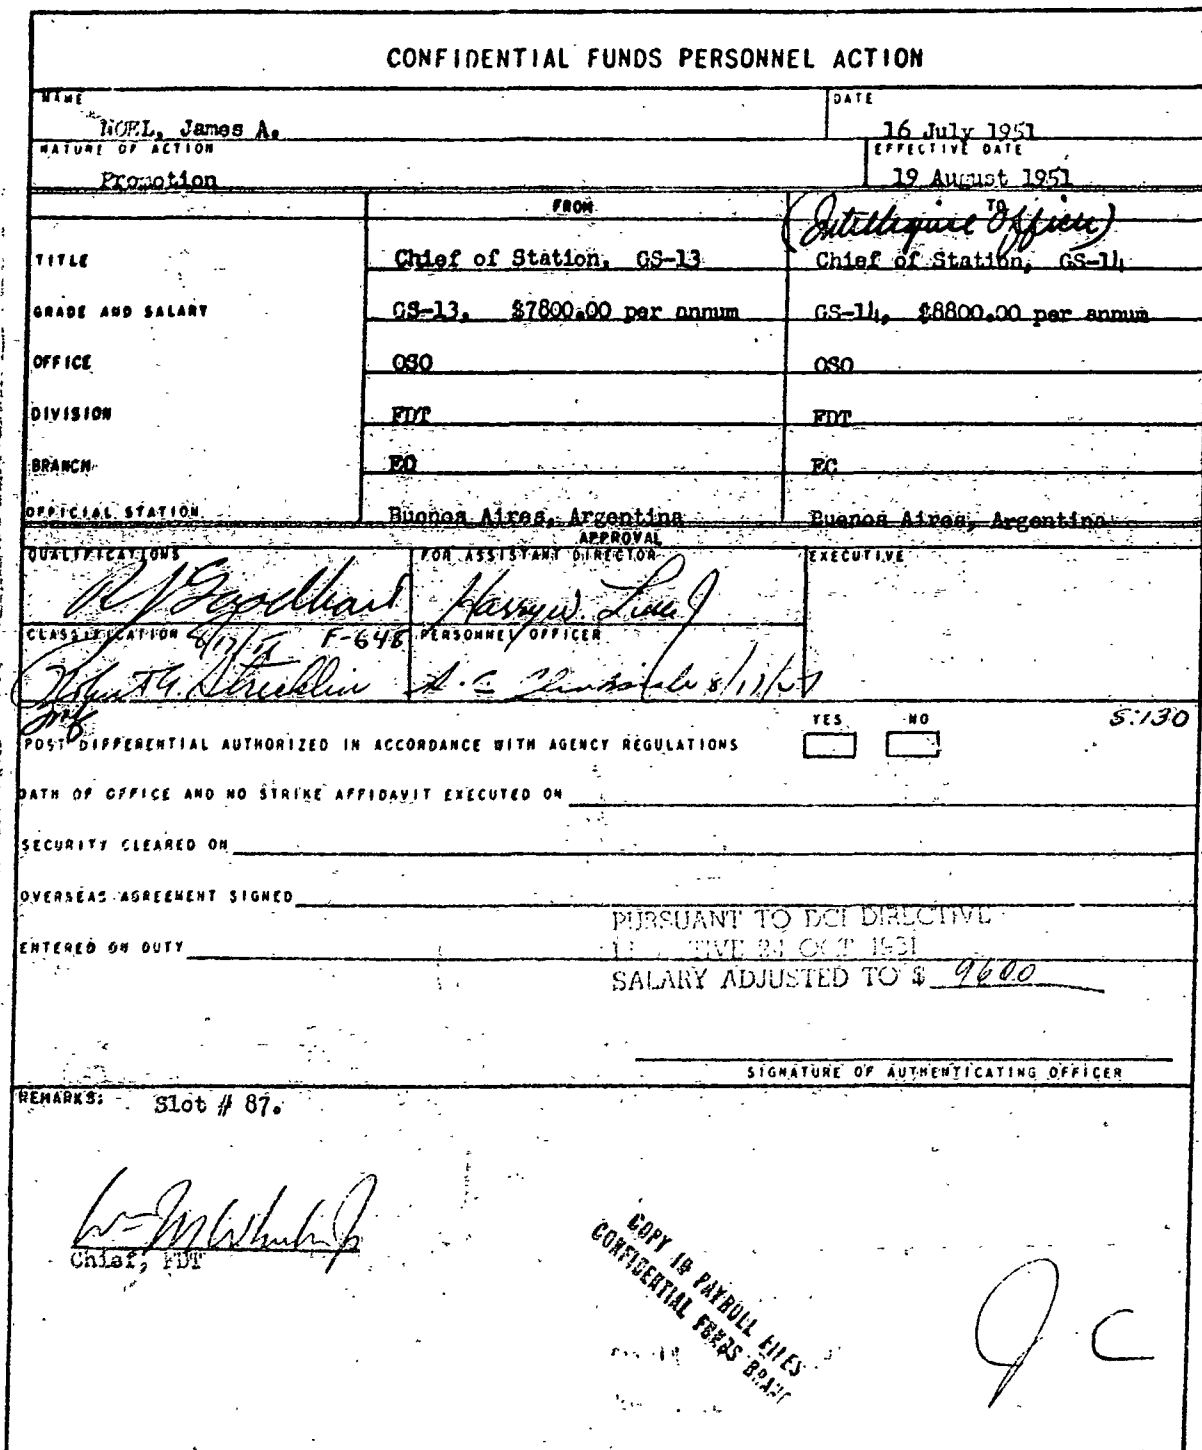 CONFIDENTIAL FUNDS PERSONNEL ACTION
NAME DATE
NOEL, James A. 16 July 1951
NATURE OF ACTION EFFECTIVE DATE
Promotion 19 August 1951
FROM TO
(Intelligence Officer)
TITLE Chief of Station, GS-13 Chief of Station, GS-14
GRADE AND SALARY GS-13, $7800.00 per annum GS-14, $8800.00 per annum
OFFICE OSO OSO
DIVISION FDT FDT
BRANCH EC
OFFICIAL STATION Buenos Aires, Argentina Buenos Aires, Argentina
APPROVAL
QUALIFICATIONS FOR ASSISTANT DIRECTOR EXECUTIVE
CLASSIFICATION F-648 PERSONNEL OFFICER
Robert G. Stricklin
YES NO 5:130
POST DIFFERENTIAL AUTHORIZED IN ACCORDANCE WITH AGENCY REGULATIONS
OATH OF OFFICE AND NO STRIKE AFFIDAVIT EXECUTED ON
SECURITY CLEARED ON
OVERSEAS AGREEMENT SIGNED
PURSUANT TO DCI DIRECTIVE
ENTERED ON DUTY
OCT
SALARY ADJUSTED TO $ 9600
SIGNATURE OF AUTHENTICATING OFFICER
REMARKS: Slot # 87.
Chief, FDT
COPY IN PAYROLL FILES
CONFIDENTIAL FUNDS
J C